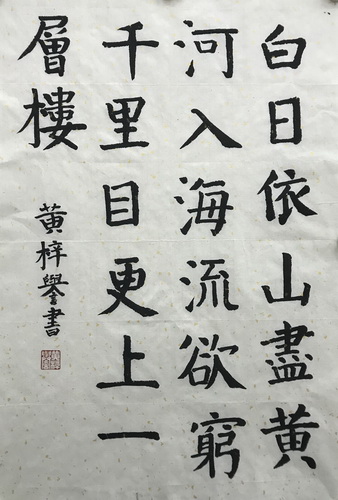 白日依山盡黄
河入海流欲窮
千里目更上一
層樓
黄梓譽書